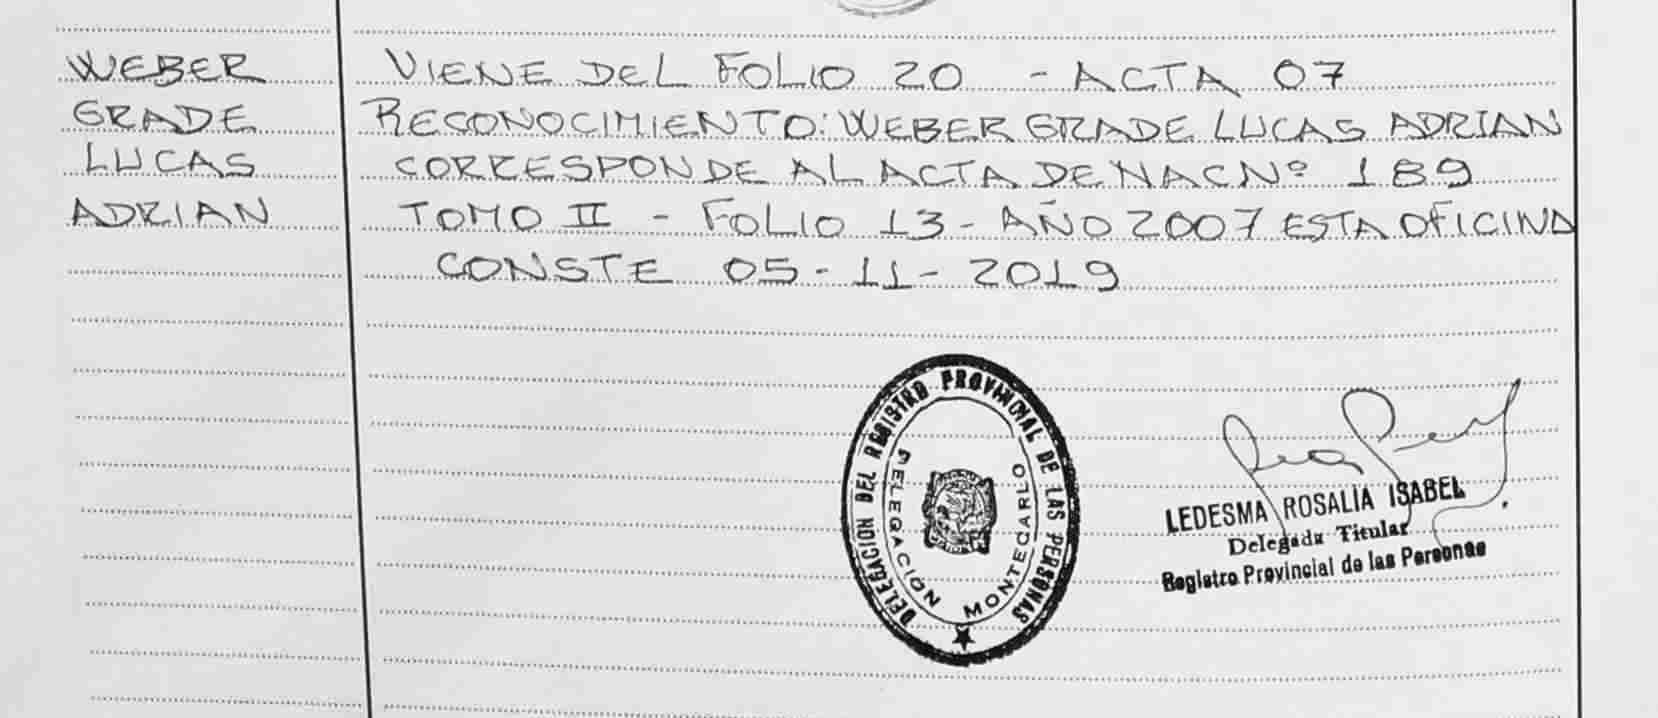 WEBER
GRADE
LUCAS
ADRIAN
VIENE DEL FOLIO 20 - ACTA 07
RECONOCIMIENTO: WEBER GRADE LUCAS ADRIAN
CORRESPONDE AL ACTA DE NAC Nº 189
TOMO II - FOLIO 13 - AÑO 2007 ESTA OFICINA
CONSTE 05-11-2019
DELEGACION DEL REGISTRO PROVINCIAL DE LAS PERSONAS
DELEGACIÓN MONTECARLO
LEDESMA ROSALIA ISABEL
Delegada Titular
Registro Provincial de las Personas